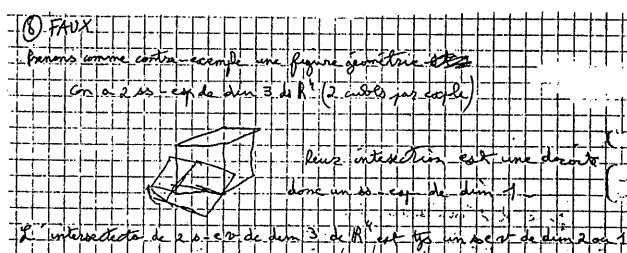 ⑧ FAUX
Prenons comme contre-exemple une figure géométrie
on a 2 ss-esp de dim 3 ds R⁴ (2 cubes par exple)
leur intersection est une droite
donc un ss-esp de dim 1
L'intersecto de 2 s-e v de dim 3 de R⁴ est tjs un s e v de dim 2 ou 1